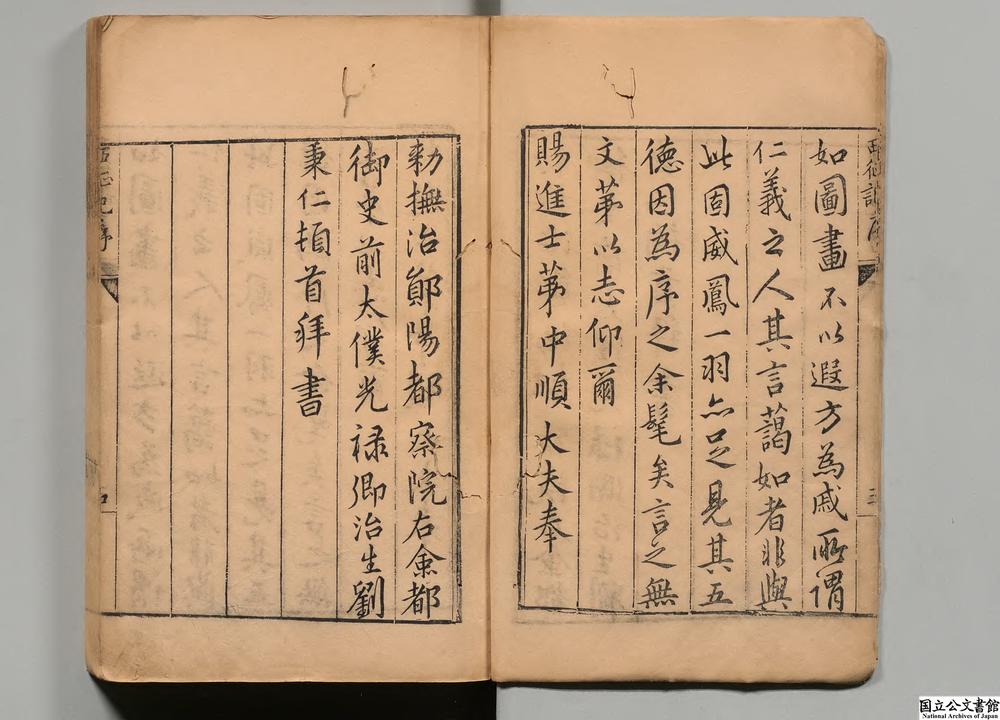 如圖畫不以遐方為戚所謂
仁義之人其言藹如者非與
此固威鳳一羽亦足見其五
德因為序之余髦矣言之無
文苐以志仰爾
賜進士苐中順大夫奉
勑撫治鄖陽都察院右僉都
御史前太僕光祿卿治生劉
秉仁頓首拜書
國立公文書館
National Archives of Japan